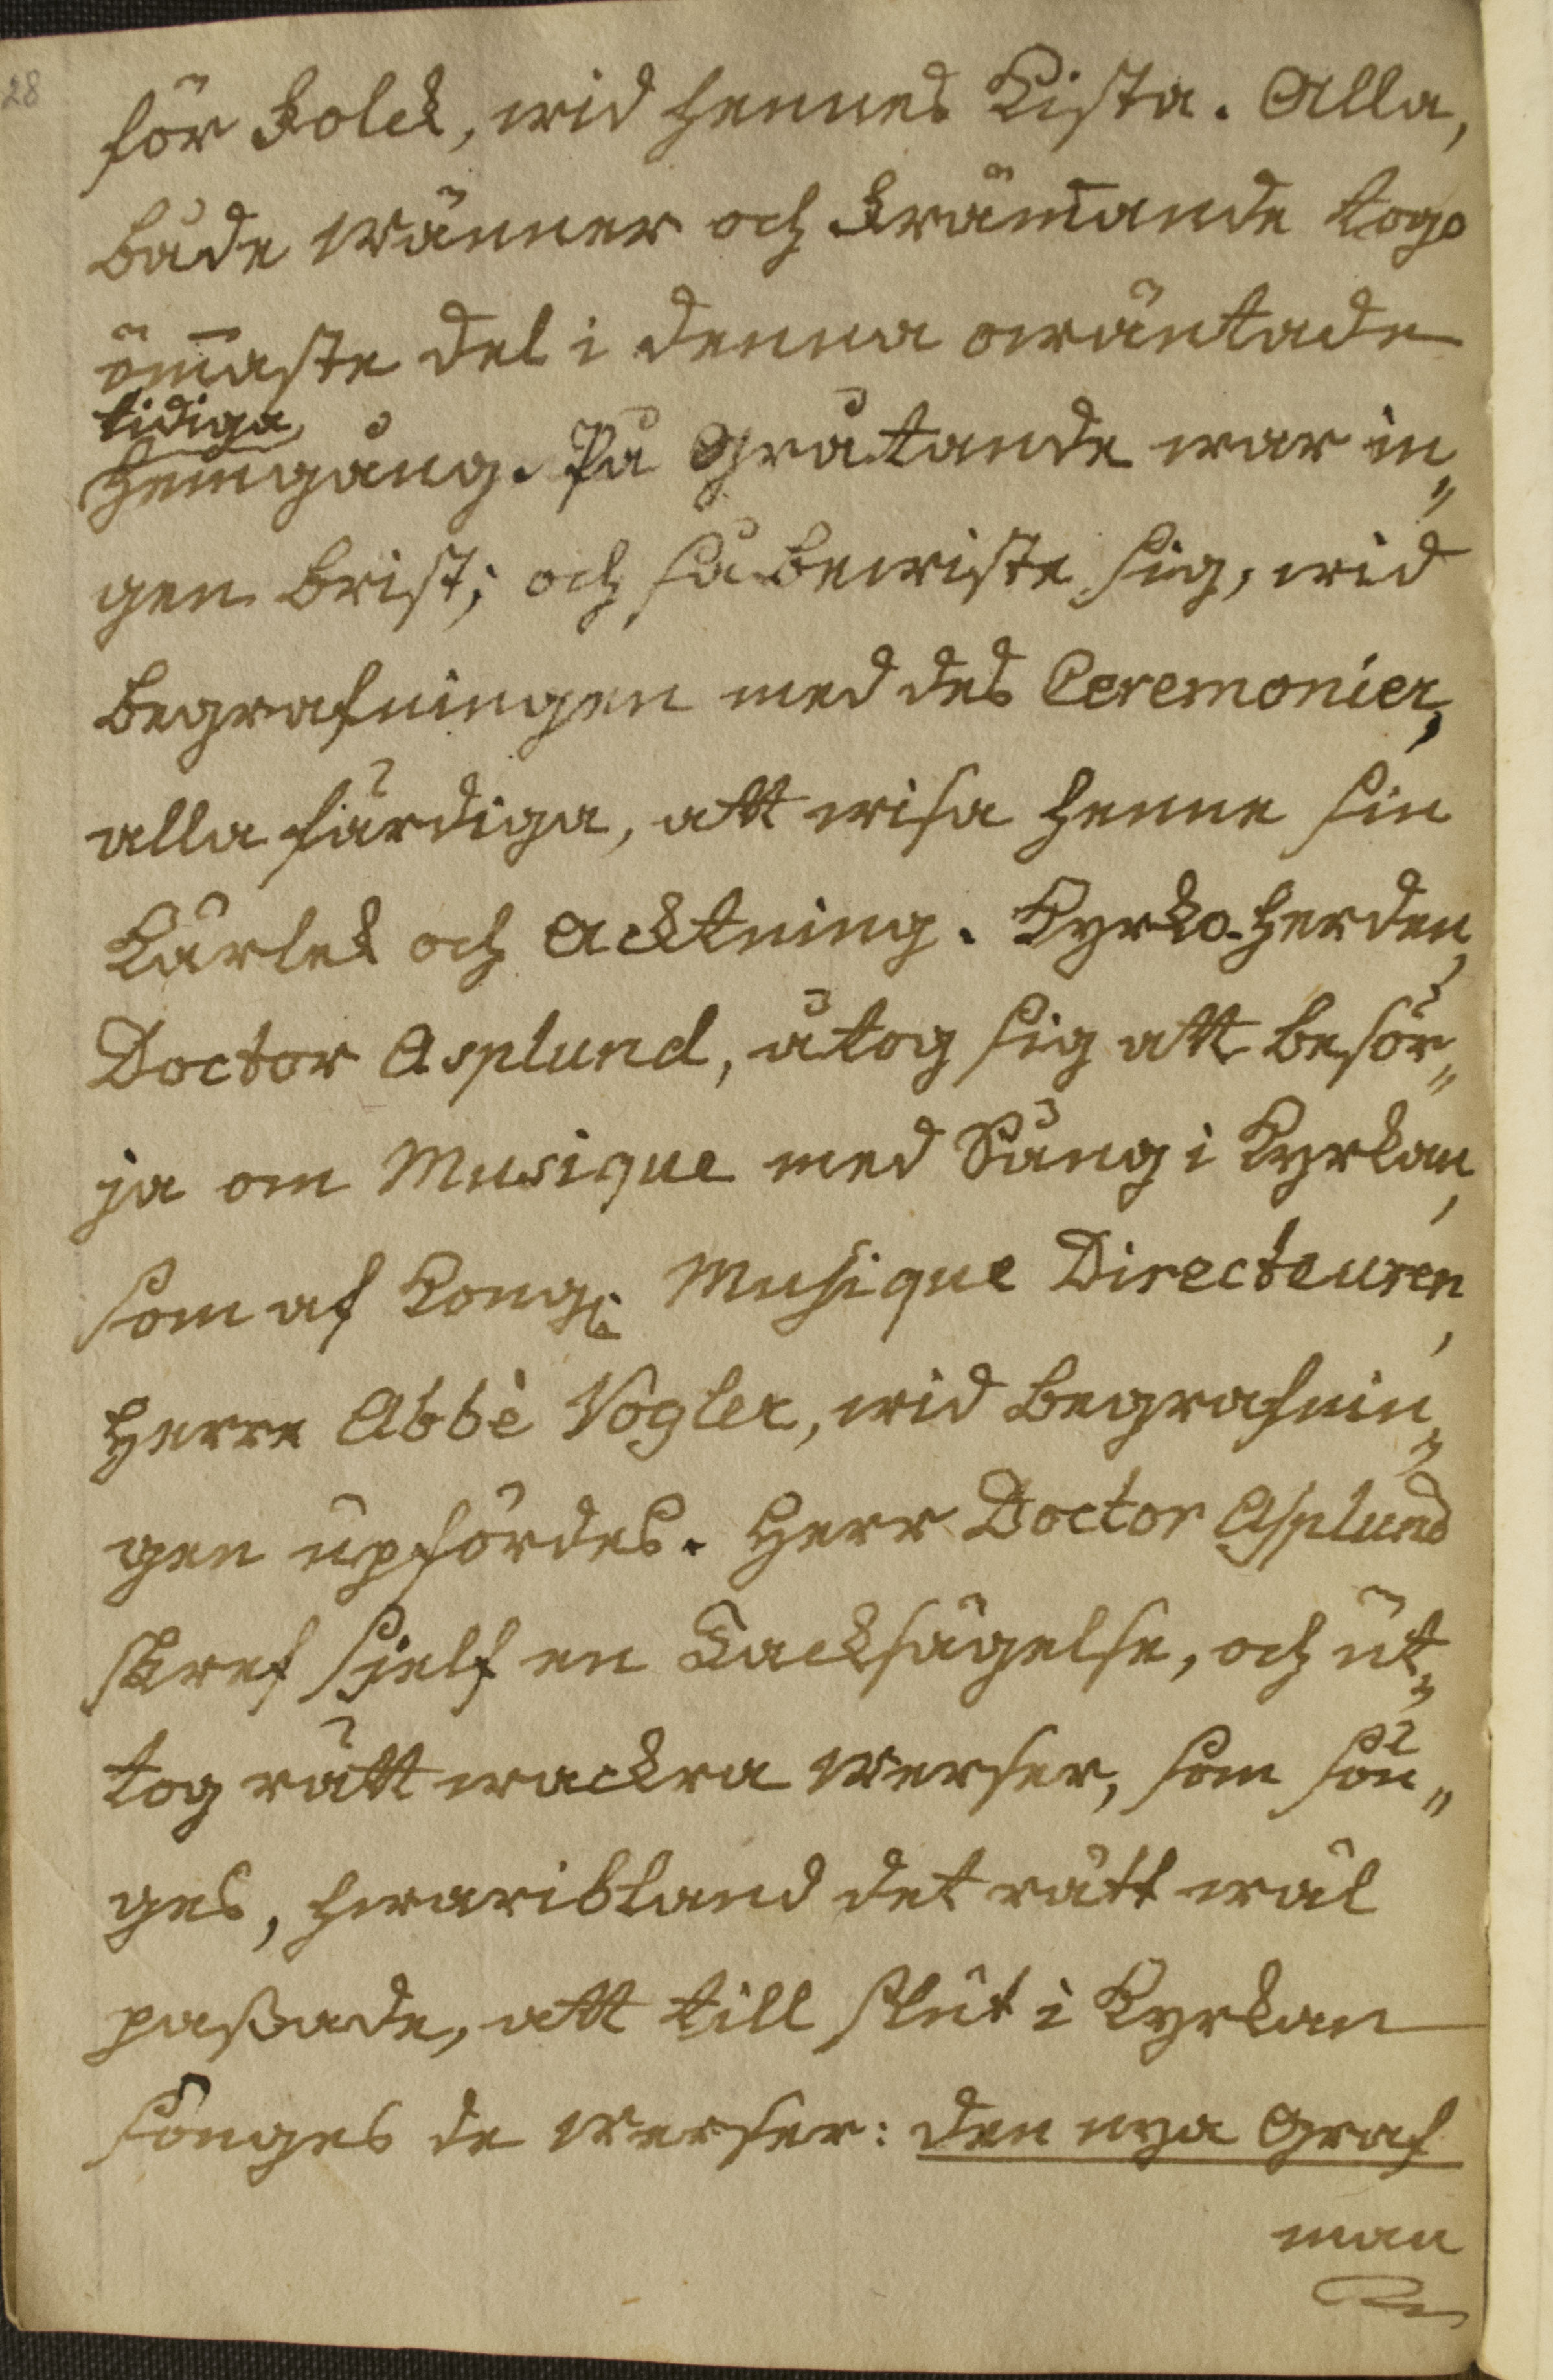 28
för Folck, wid hennes Kista. Alla,
både Wänner och Främ̄ande togo
öm̄aste del i denna owäntade
tidiga
Hemgång. På Gråtande war in„
gen brist; och få bewiste sig, wid
begrafningen med des Ceremonier,
alla färdiga, att wisa henne sin
Kärlek och Acktning. Kyrko-Herden,
Doctor Asplund, åtog sig att besör„
ja om Musique med Sång i Kyrkan,
som af Kongl. Musique Directeuren,
Herre Abbè Vogler, wid begrafnin„
gen upfördes. Herr Doctor Asplund
skref sjelf en Tacksägelse, och ut„
tog rätt wackra Werser, som sön„
ges, hwaribland det rätt wäl
paßade, att till slut i Kyrkan
sönges de Werser: den nya Graf
man